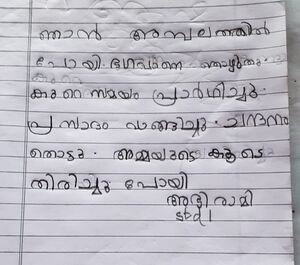 ഞാൻ അമ്പലത്തിൽ
പോയി. ഭഗവാനെ തൊഴുതു.
കുറെ സമയം പ്രാർഥിച്ചു.
പ്രസാദം വാങ്ങിച്ചു. ചന്ദനം
തൊട്ടു. അമ്മയുടെ കൂടെ
തിരിച്ചു പോയി
അഭിരാമി
std I